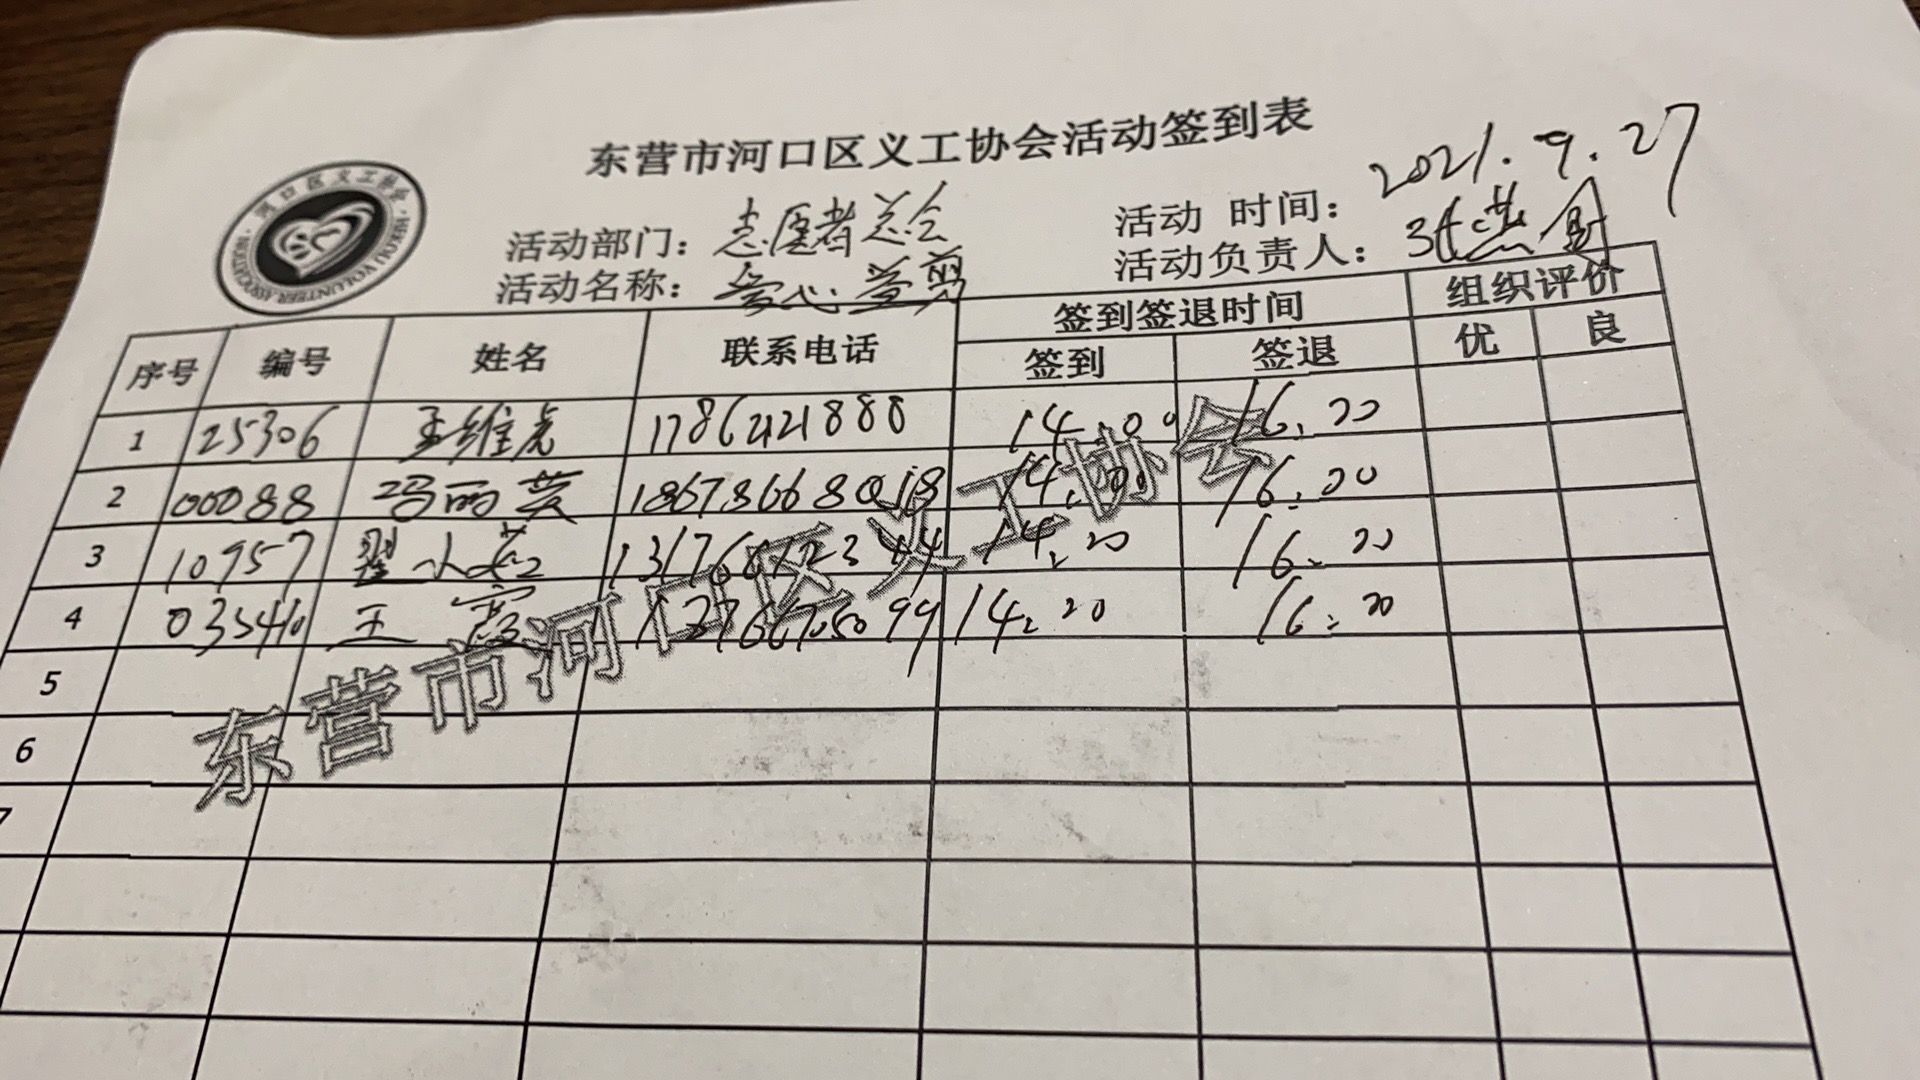 东营市河口区义工协会活动签到表
河口区义工协会
HEKOU VOLUNTEER ASSOCIATION
活动部门：志愿者总会
活动时间：2021.9.27
活动名称：爱心义剪
活动负责人：
序号 编号 姓名 联系电话 签到签退时间 组织评价
签到 签退 优 良
1 25306 王维虎 17862121888 14.00 16.20
2 00088 冯丽英 14.00 16.20
3 10957 翟小芯 14.20 16.20
4 王霞 14.20 16.20
5
6
7
东营市河口区义工协会